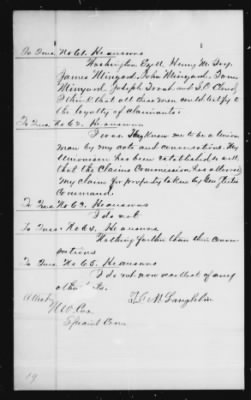 To Ques. No 61. He answers
Washington Cyell Henry M. Ivy,
James Minyard, John Minyard, Sam
Minyard, Joseph and S. C. Cloud,
I think that all these men could testify to
the loyalty of claimants.
To Ques. No 62. He answers
I was they knew me to be a Union
man by my acts and conversations. My
Unionism has been established so well
that the Claims Commission has allowed
my claim for property taken by Gen
Command.
To Ques. No 63. He answers
I do not
To Ques. No 64. He answers
Nothing further than this
To Ques. No 65. He answers
I do not nor was that of any
other
Attest
Special Com